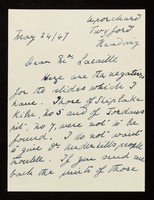 Uporchard
Twyford
May 24/47 Reading
Dear Mrs Lacaille
Here are the negatives
for the slides which I
have. Those of Ripplake
Kiln, no 3 and of Jordans
pit, no 7, were not to be
found. I do not want
to give Dr Underhill's people
trouble. If you send me
back the prints of those